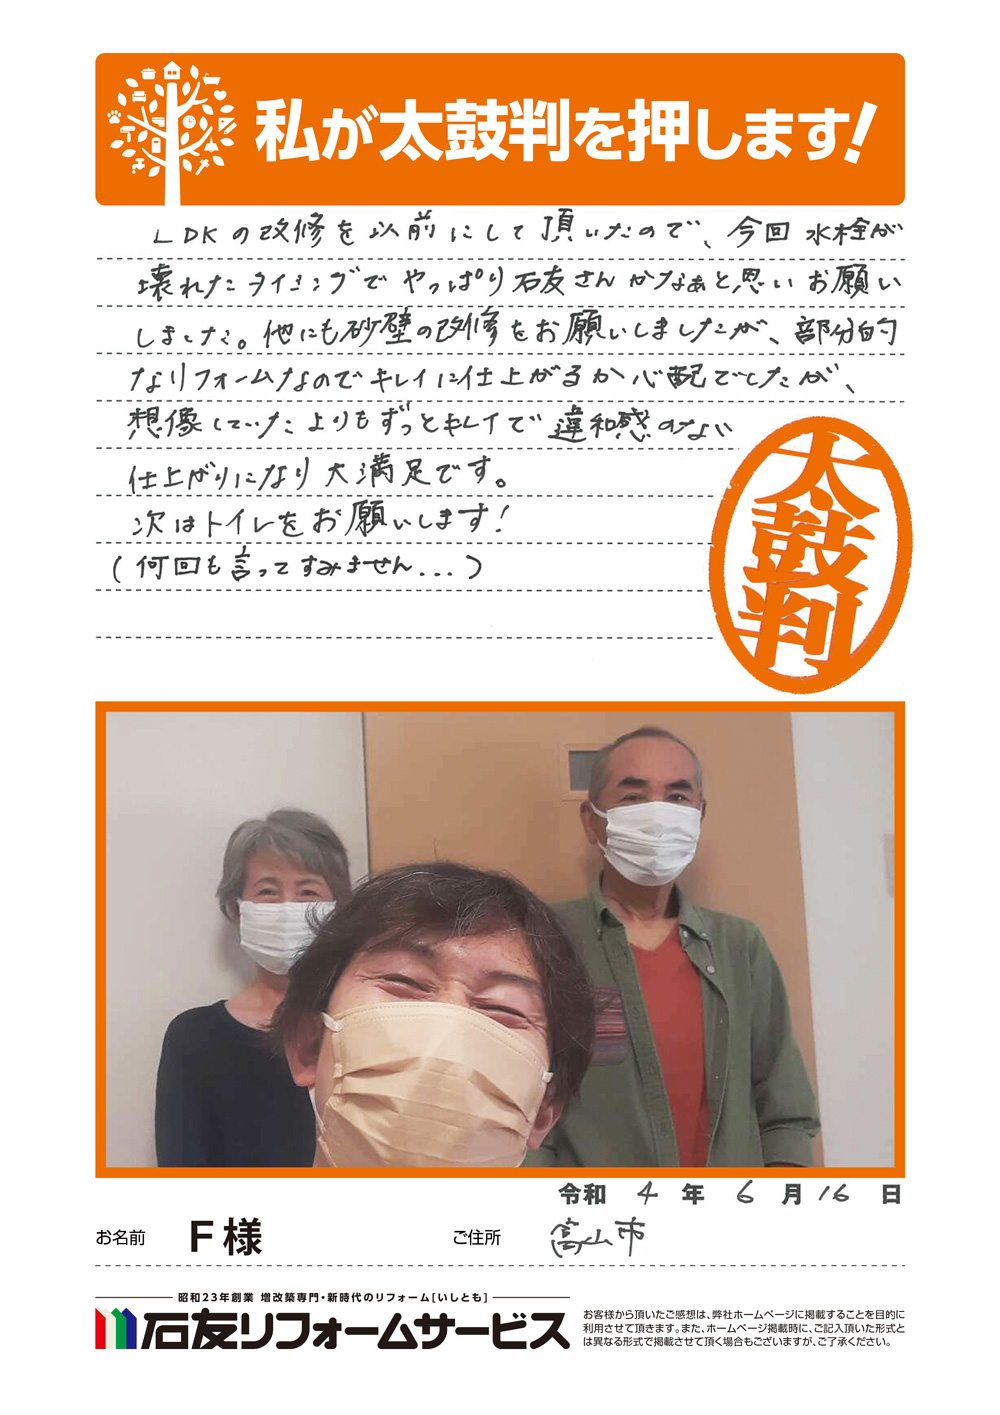 私が太鼓判を押します!
LDKの改修を以前にして頂いたので、今回水栓が
壊れたタイミングでやっぱり石友さんかなぁと思いお願い
しました。他にも砂壁の改修をお願いしましたが、部分的
なリフォームなのでキレイに仕上がるか心配でしたが、
想像していたよりもずっとキレイで違和感のない
仕上がりになり大満足です。
次はトイレをお願いします!
(何回も言ってすみません...)
太鼓判
令和 4 年 6 月 16 日
お名前 F様 ご住所 高山市
昭和23年創業 増改築専門・新時代のリフォーム[いしとも]
石友リフォームサービス
お客様から頂いたご感想は、弊社ホームページに掲載することを目的に
利用させて頂きます。また、ホームページ掲載時に、ご記入頂いた形式と
は異なる形式で掲載させて頂く場合もございますが、ご了承ください。